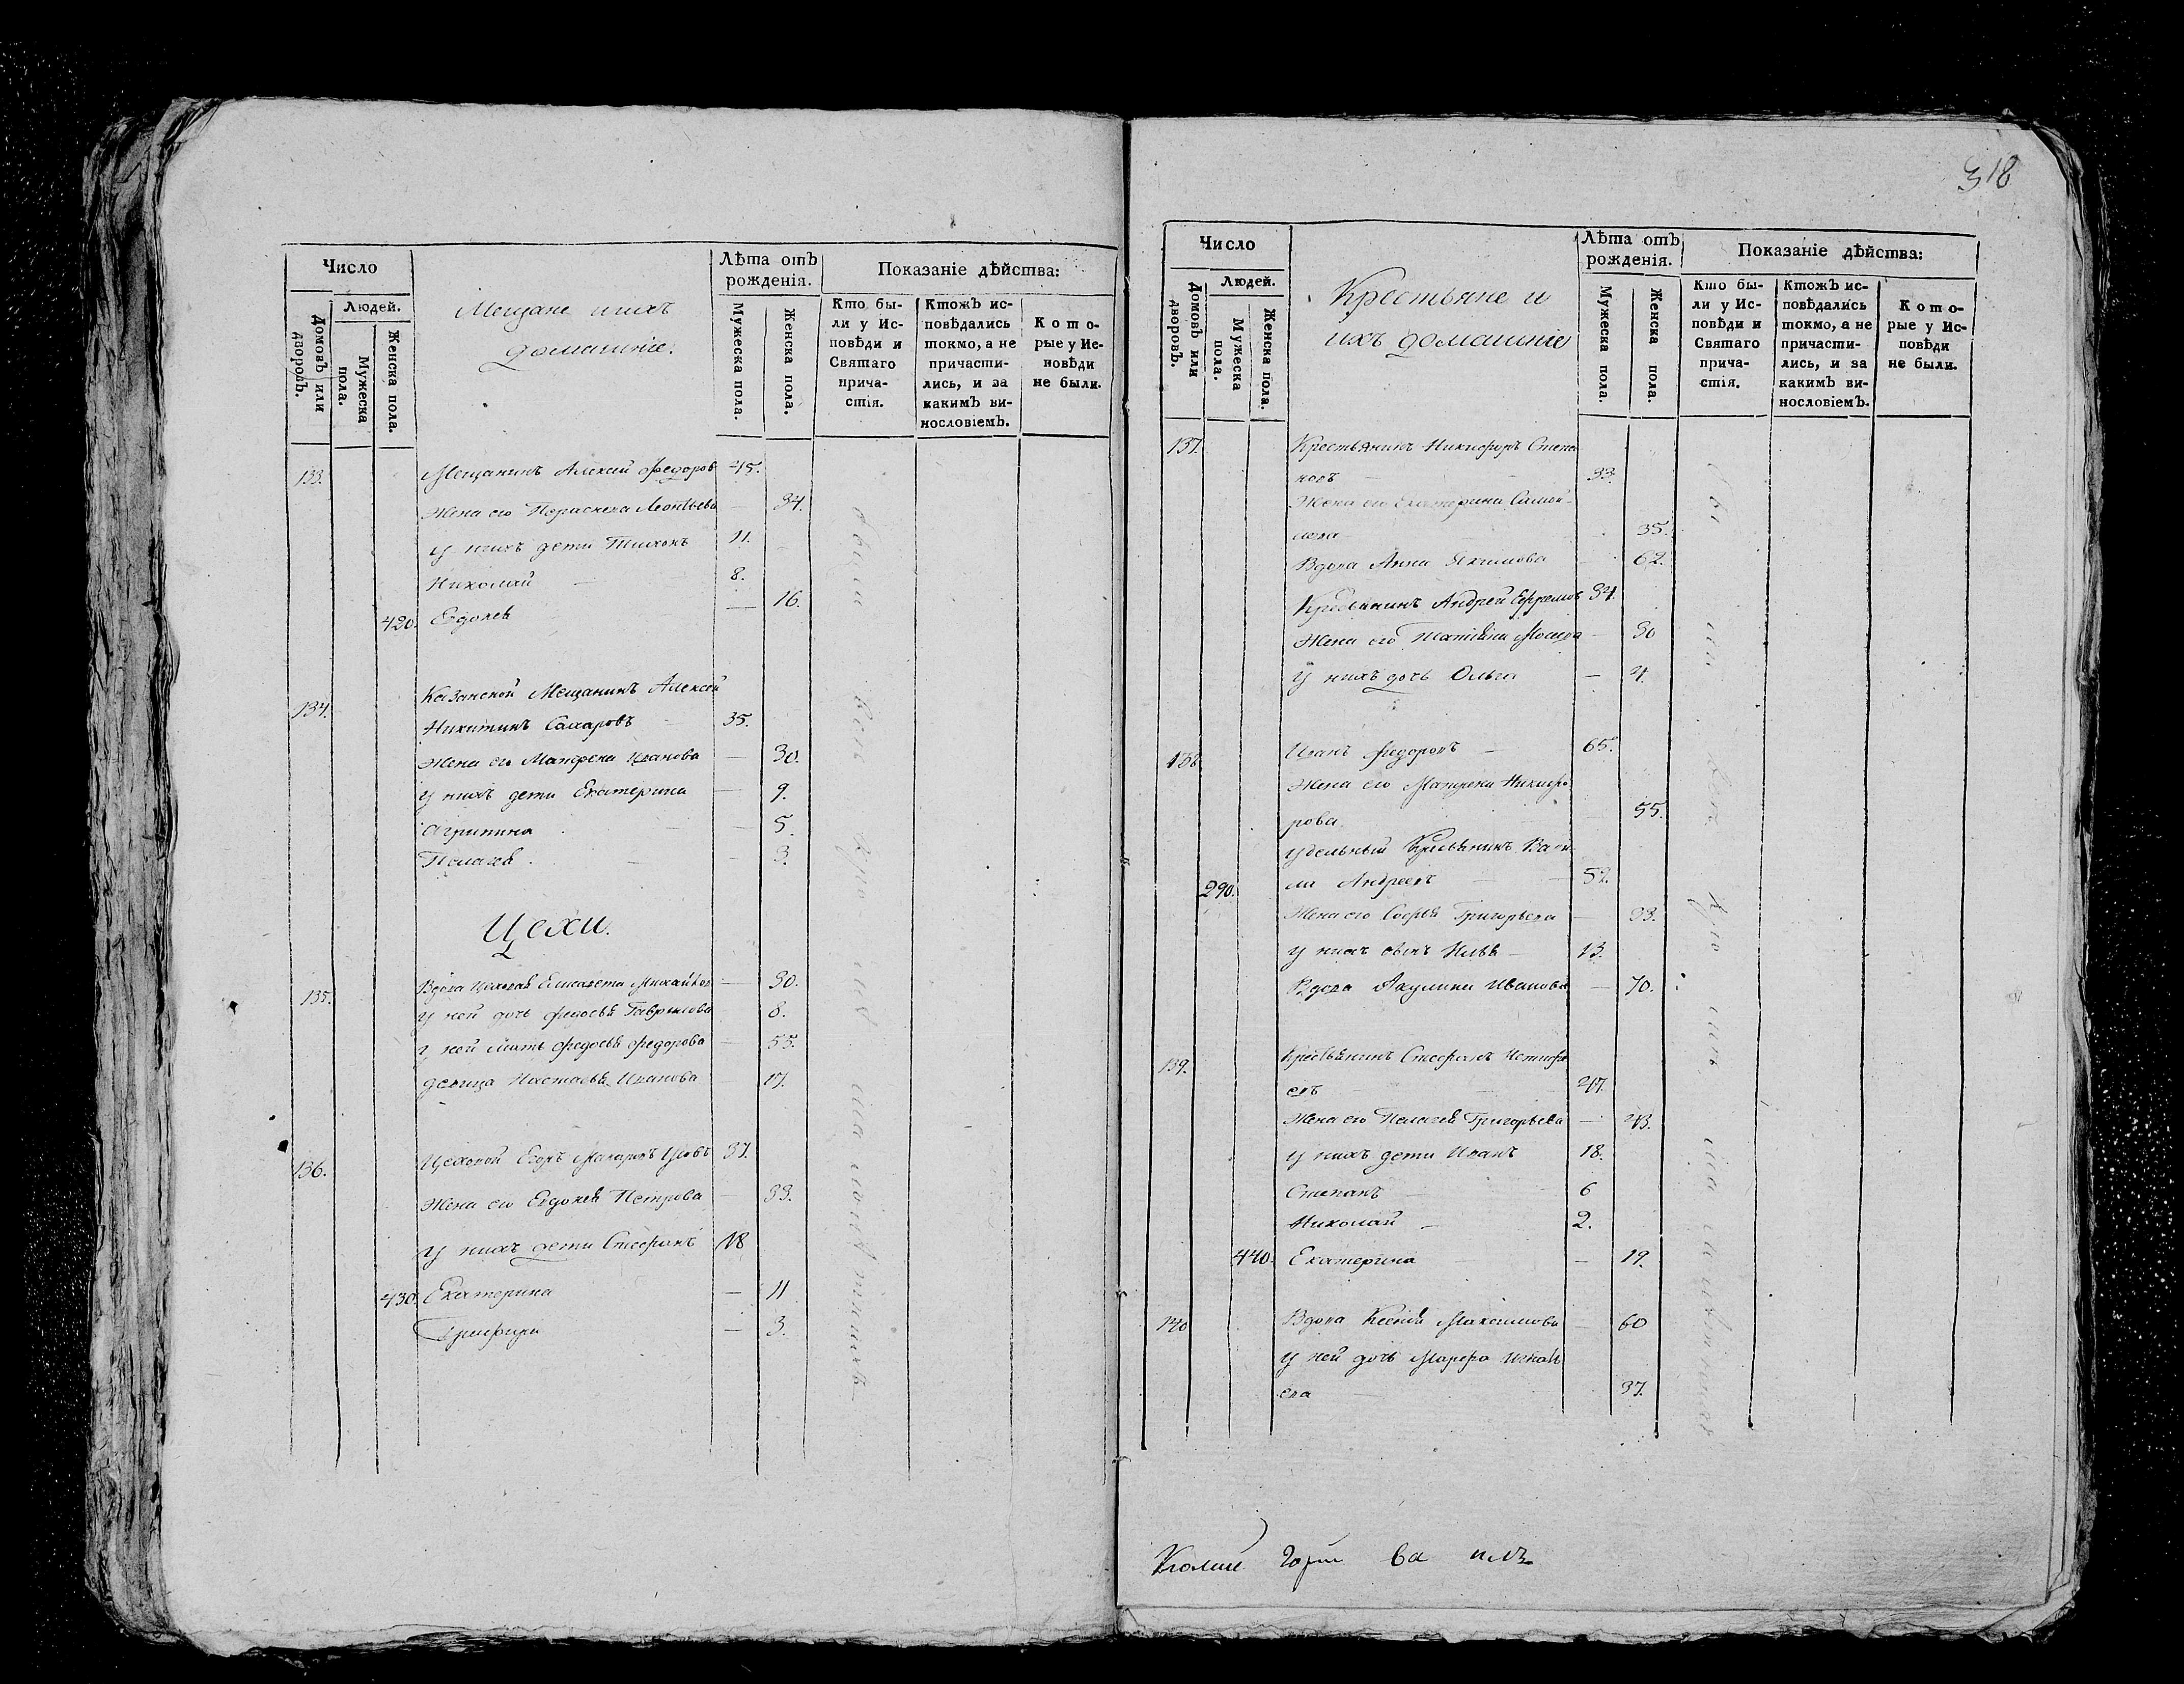 Число
Домовъ или дворовъ.
Людей.
Мужеска пола.
Женска пола.
Мещане и ихъ
домашніе.
Лѣта отъ рожденія.
Мужеска пола.
Женска пола.
Показаніе дѣйства:
Кто бы-
ли у Ис-
повѣди и
Святаго
прича-
стія.
Ктожъ ис-
повѣдались
токмо, а не
причасти-
лись, и за
какимъ ви-
нословіемъ.
Кото-
рые у Ис-
повѣди
не были.
133. Мещанинъ Алексей Федоров 45.
Жена его Параскева Леонтьева — 34.
у нихъ дети Тихонъ 11.
Николай — 8.
420. Евдокея — 16.
134. Казанской Мещанинъ Алексей
Никитинъ Сахаровъ 35.
Жена его Матрена Иванова — 30.
у нихъ дети Екатерина — 9.
Агрипина — 5.
Пелагея — 3.
Цехи.
135. Вдова Цеховая Елисавета Михайлов — 30.
у ней дочь Федосья Гаврилова 8.
у ней мать Федосья Федорова — 55.
девица Настасья Иванова — 17.
136. Цеховой Егоръ Макаровъ 37.
Жена его Евдокея Петрова — 33.
у нихъ дети Стефанъ 18
430. Екатерина — 11
— 3.
318
Число
Домовъ или дворовъ.
Людей.
Мужеска пола.
Женска пола.
Крестьяне и
ихъ домашніе
Лѣта отъ рожденія.
Мужеска пола.
Женска пола.
Показаніе дѣйства:
Кто бы-
ли у Ис-
повѣди и
Святаго
прича-
стія.
Ктожъ ис-
повѣдались
токмо, а не
причасти-
лись, и за
какимъ ви-
нословіемъ.
Кото-
рые у Ис-
повѣди
не были.
137. Крестьянинъ Никифоръ Степа
новъ — 33.
Жена его Екатерина Самой-
лова 35.
Вдова Анна Якимова — 62.
Андрей Ефремовъ 34.
Жена его — 30
у нихъ дочь Ольга — 4.
138. Иванъ Федоровъ — 65.
Жена его Матрена Никифо
рова 55.
Удельный Васи
290. ли Андреевъ — 52.
Жена его Софья Григорьева —
у нихъ сынъ Илья — 13.
Вдова Акулина Иванова — 70.
139. Стефанъ
евъ 47.
Жена его Пелагея Григорьева — 43.
у нихъ дети Иванъ 18.
Степанъ — 6
Николай — 2.
440. Екатерина — 19.
140 Вдова Ксения Максимова — 60
у ней дочь Марфа
ева 37.